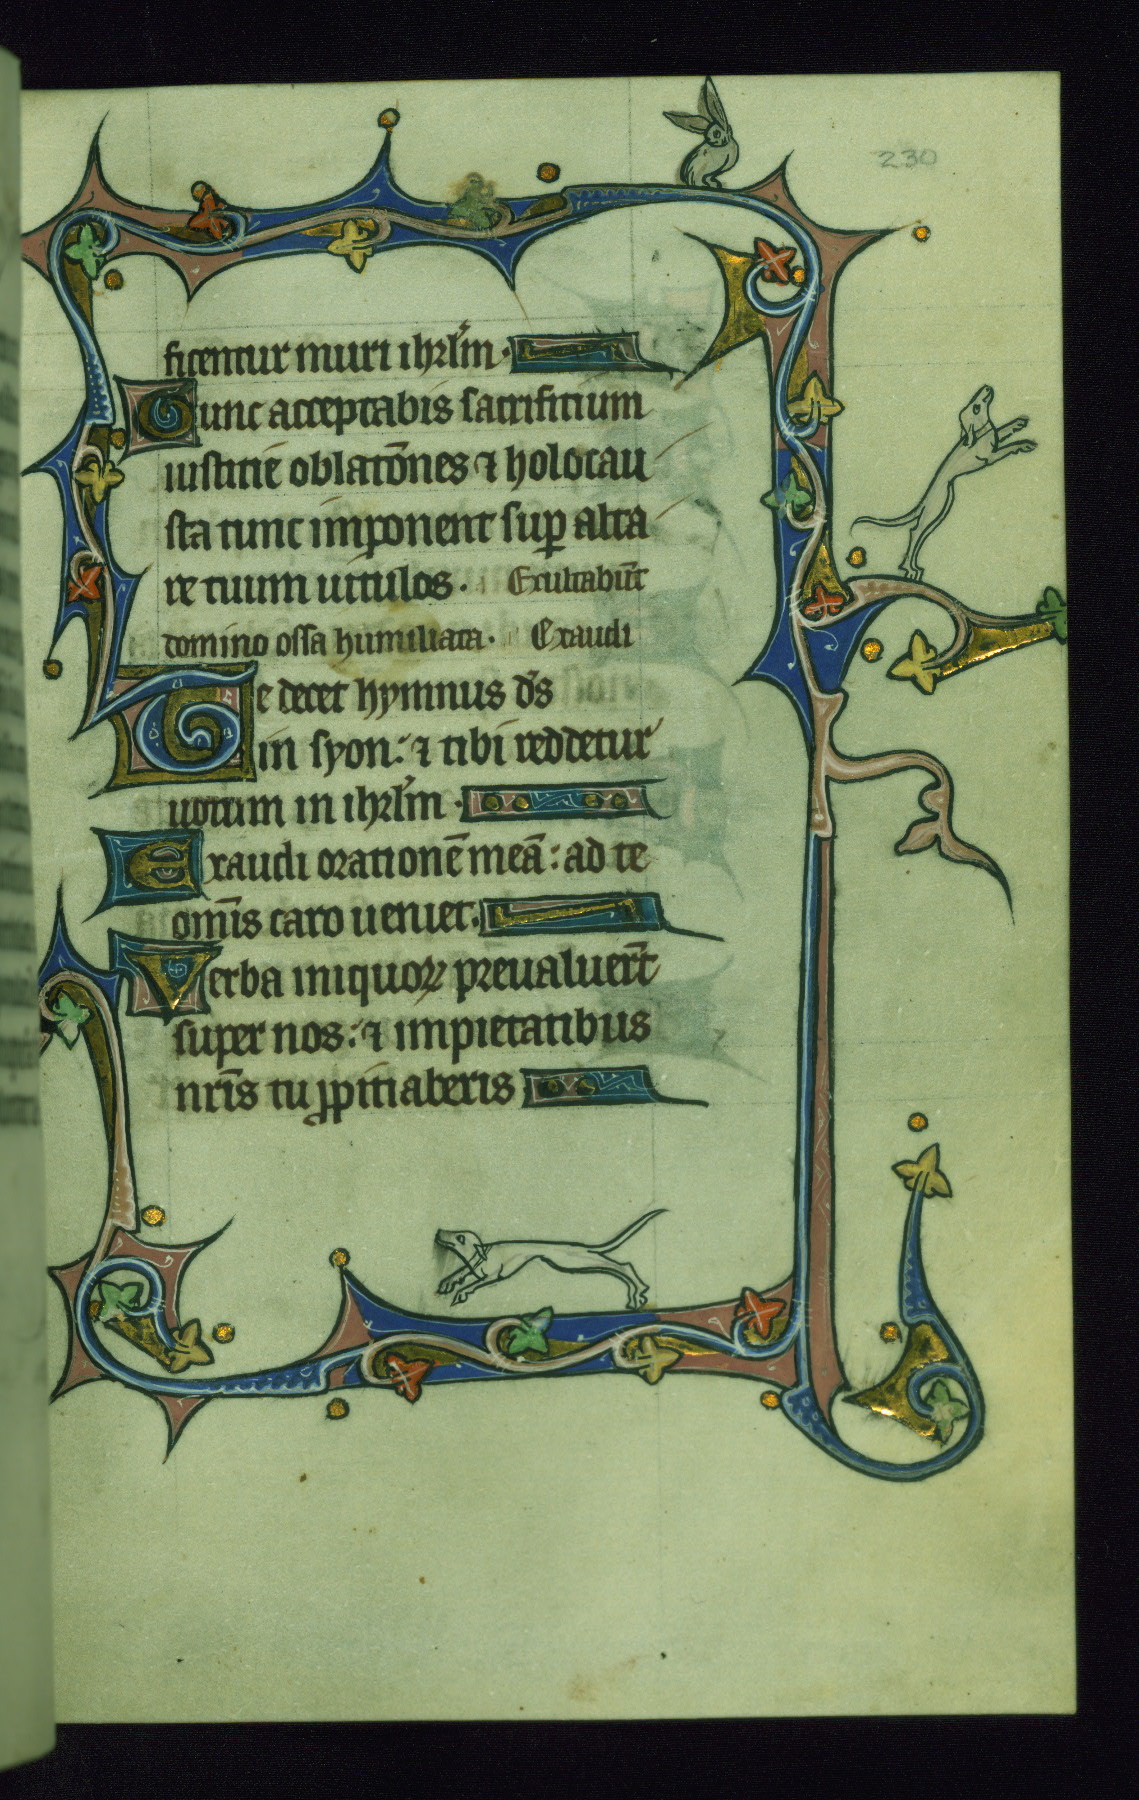 230
ficentur muri ihrl̃m.
Tunc acceptabis sacrificium
iusticie oblatõnes ⁊ holocau
sta tunc imponent sup̲ alta
re tuum uitulos. Exultabũt
domino ossa humiliata. Exaudi
Te decet hymnus d̃s
in syon: ⁊ tibi reddetur
uotum in ihrl̃m.
Exaudi orationẽ meã: ad te
om̃is caro ueniet.
Verba iniquoꝝ preualuer̃t
super nos: ⁊ impietatibus
nr̃is tu ꝓpitiaberis